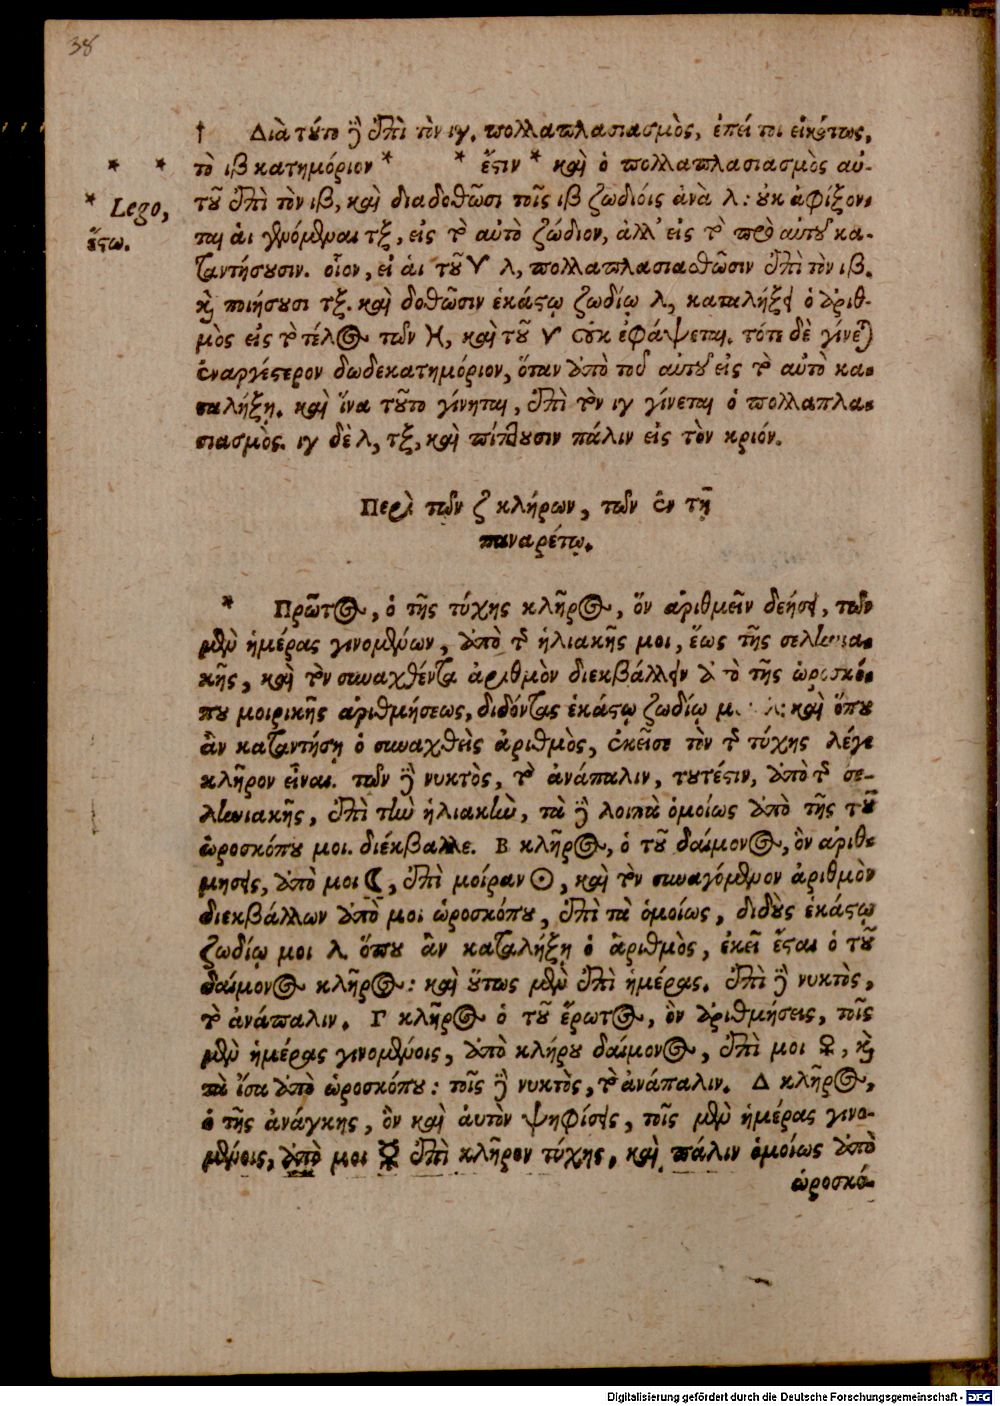 38
† Διὰ τούτο δὲ ἐπὶ τὸν ιγ, πολλαπλασιασμὸς, ἐπεί τοι εἰκότως,
* * τὸ ιβ κατημόριον * * ἔστιν * καὶ ὁ πολλαπλασιασμὸς αὐ-
* Lego, τοῦ ἐπὶ τὸν ιβ, καὶ διαδοθῶσι τοῖς ιβ ζωδίοις ἀνὰ λ: οὐκ ἀφίξον-
ἔστω. ται ἁι γενόμεναι τξ, εἰς τὸ αὐτὸ ζώδιον, ἀλλ' εἰς τὸ πρὸ αὐτοῦ κα-
ταντήσουσιν. οἷον, εἰ ἁι τοῦ ♈ λ, πολλαπλασιασθῶσιν ἐπὶ τὸν ιβ.
καὶ ποιήσουσι τξ. καὶ δοθῶσιν ἑκάστῳ ζωδίῳ λ, καταλήξει ὁ ἀριθ-
μὸς εἰς τὸ τέλος τῶν ♓, καὶ τοῦ ♈ οὐκ ἐφάψεται. τότε δὲ γίνεται
ἐναργέστερον δωδεκατημόριον, ὅταν ἀπὸ τοῦ αὐτοῦ εἰς τὸ αὐτὸ κα-
ταλήξῃ. καὶ ἵνα τοῦτο γίνηται, ἐπὶ τὸν ιγ γίνεται ὁ πολλαπλα-
σιασμὸς. ιγ δὲ λ, τξ, καὶ πίπτουσιν πάλιν εἰς τὸν κριόν.
Περὶ τῶν ζ κλήρων, τῶν ἐν τῇ
παναρέτῳ.
* Πρῶτος, ὁ τῆς τύχης κλῆρος, ὅν ἀριθμεῖν δεήσει, τῶν
μὲν ἡμέρας γινομένων, ἀπὸ τῆς ἡλιακῆς μοι, ἕως τῆς σεληνια-
κῆς, καὶ τὸν συναχθέντα ἀριθμὸν διεκβάλλειν ἀπὸ τῆς ὡροσκό-
που μοιρικῆς ἀριθμήσεως, διδόντας ἑκάστῳ ζωδίῳ μ λ: καὶ ὅπου
ἂν καταντήσῃ ὁ συναχθεὶς ἀριθμὸς, ἐκεῖσε τὸν τῆς τύχης λέγε
κλῆρον εἶναι. τῶν δὲ νυκτὸς, τὸ ἀνάπαλιν, τουτέστιν, ἀπὸ τῆς σε-
ληνιακῆς, ἐπὶ τὴν ἡλιακὴν, τὰ δὲ λοιπὰ ὁμοίως ἀπὸ τῆς τοῦ
ὡροσκόπου μοι. διέκβαλλε. Β κλῆρος, ὁ τοῦ δαίμονος, ὃν ἀριθ-
μησεις, ἀπὸ μοι ☾, ἐπὶ μοίραν ☉, καὶ τὸν συναγόμενον ἀριθμὸν
διεκβάλλων ἀπὸ μοι ὡροσκόπου, ἐπὶ τὰ ὁμοίως, διδοὺς ἑκάστῳ
ζωδίῳ μοι λ. ὅπου ἂν καταλήξῃ ὁ ἀριθμὸς, ἐκεῖ ἔσται ὁ τοῦ
δαίμονος κλῆρος: καὶ οὕτως μὲν ἐπὶ ἡμέρας. ἐπὶ δὲ νυκτὸς,
τὸ ἀνάπαλιν. Γ κλῆρος ὁ τοῦ ἔρωτος, ὃν ἀριθμήσεις, τοῖς
μὲν ἡμέρας γινομένοις, ἀπὸ κλήρου δαίμονος, ἐπὶ μοι ♀, καὶ
τὰ ἴσα ἀπὸ ὡροσκόπου: τοῖς δὲ νυκτὸς, τὸ ἀνάπαλιν. Δ κλῆρος,
ὁ τῆς ἀνάγκης, ὃν καὶ ἀυτὸν ψηφίσεις, τοῖς μὲν ἡμέρας γινο-
μένοις, ἀπὸ μοι ☿ ἐπὶ κλῆρον τύχης, καὶ πάλιν ὁμοίως ἀπὸ
ὡροσκό-
Digitalisierung gefördert durch die Deutsche Forschungsgemeinschaft - DFG